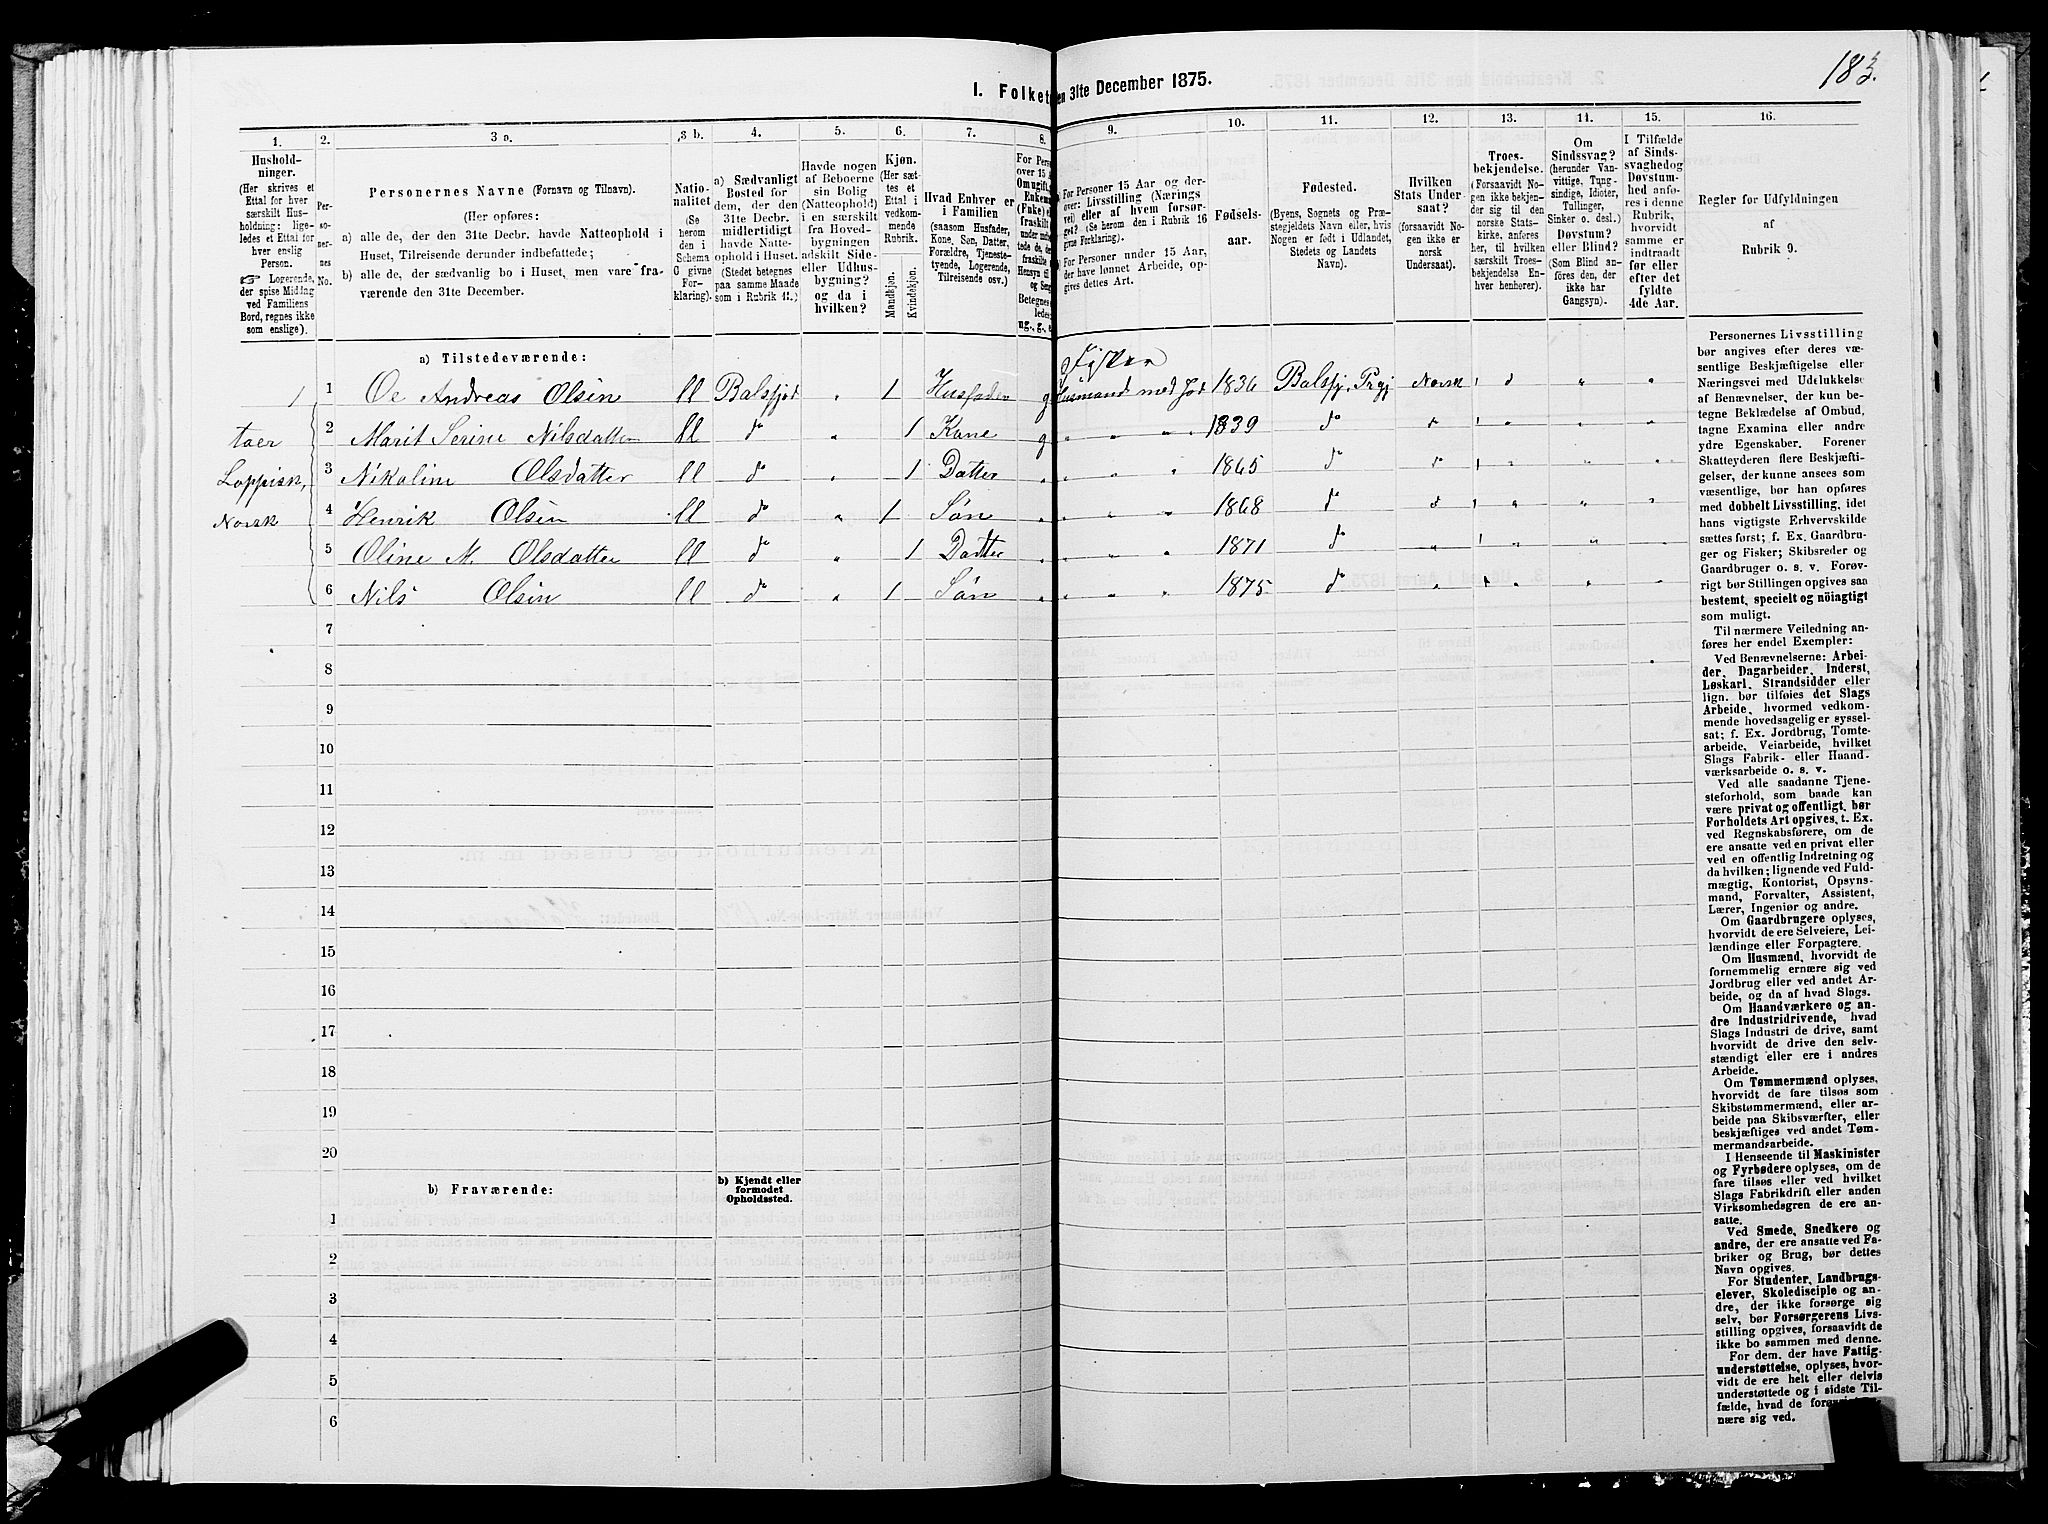 183.
I. Folket en 31te December 1875.
1. 2. 3 a. 3 b. 4. 5. 6. 7. 8. 9. 10. 11. 12. 13. 14. 15. 16.
Hushold-
ninger.
(Her skrives et
Ettal for hver
særskilt Hus-
holdning; lige-
ledes et Ettal for
hver enslig
Person.
☞ Logerende,
der spise Middag
ved Familiens
Bord, regnes ikke
som enslige).
Per-
so-
ner-
nes
No.
Personernes Navne (Fornavn og Tilnavn).
(Her opføres:
a) alle de, der den 31te Decbr. havde Natteophold i
Huset, Tilreisende derunder indbefattede;
b) alle de, der sædvanlig bo i Huset, men vare fra-
værende den 31te December.
Natio-
nalitet
(Se
herom
den i
Schema
G givne
For-
klaring).
a) Sædvanligt
Bosted for
dem, der den
31te Decbr.
midlertidigt
havde Natte-
ophold i Huset.
(Stedet betegnes
paa samme Maade
som i Rubrik 11.)
Havde nogen
af Beboerne
sin Bolig
(Natteophold)
i en særskilt
fra Hoved-
bygningen
adskilt Side-
eller Udhus-
bygning?
og da i
hvilken?
Kjøn.
(Her sæt-
tes et
Ettal i
vedkom-
mende
Rubrik.
Mandkjøn.
Kvindekjøn.
Hvad Enhver er
i Familien
(saasom Husfader,
Kone, Søn, Datter,
Forældre, Tjeneste-
tyende, Logerende,
Tilreisende osv.)
For Pers
over 15 A
Omugift,
Enkem
(Enke) e
fraskilt
Hensyn til
og Seng
Betegnes
ledes:
ug., g., e
For Personer 15 Aar og der-
over: Livsstilling (Nærings
vei) eller af hvem forsør-
get? (Se herom den i Rubrik 16
givne Forklaring).
For Personer under 15 Aar,
der have lønnet Arbeide, op-
gives dettes Art.
Fødsels-
aar.
Fødested.
(Byens, Sognets og Præ-
stegjeldets Navn eller, hvis
Nogen er født i Udlandet,
Stedets og Landets
Navn).
Hvilken
Stats Under-
saat?
(forsaavidt No-
gen ikke er
norsk
Undersaat).
Troes-
bekjendelse.
(Forsaavidt No-
gen ikke bekjen-
der sig til den
norske Stats-
kirke, anføres
her, til hvilken
særskilt Troes-
bekjendelse En-
hver henhører).
Om
Sindssvag?
(herunder Van-
vittige, Tung-
sindige, Idioter,
Tullinger,
Sinker o. desl.)
Døvstum?
eller Blind?
(Som Blind an-
føres den, der
ikke har
Gangsyn).
I Tilfælde
af Sinds-
svaghedog
Døvstum-
hed anfø-
res i denne
Rubrik,
hvorvidt
samme er
indtraadt
før eller
efter det
fyldte
4de Aar.
Regler for Udfyldningen
af
Rubrik 9.
a) Tilstedeværende:
Fisker
1 1 Oe Andreas Olsen ll Balsfjod " 1 Husfader g Husmand med Jod 1836 Balsfj. Prgj Norsk
taer 2 Marit Serine Nilsdatter ll do " 1 Kone g " " " 1839 do
Lappisk, 3 Nikoline Olsdatter ll do " 1 Datter " " " 1865 do
Norsk 4 Henrik Olsen ll do " 1 Søn " " " 1868 do
5 Oline M. Olsdatter ll do " 1 Datter " " " 1871 do
6 Nils Olsen ll do " 1 Søn " " " 1875 do
7
8
9
10
11
12
13
14
15
16
17
18
19
20
b) Fraværende:
b) Kjendt eller
formodet
Opholdssted.
1
2
3
4
5
6
Personernes Livsstilling
bør angives efter deres væ-
sentlige Beskjæftigelse eller
Næringsvei med Udelukkelse
af Benævnelser, der kun be-
tegne Beklædelse af Ombud,
tagne Examina eller andre
ydre Egenskaber. Forener
Skatteyderen flere Beskjæfti-
gelser, der kunne ansees som
væsentlige, bør han opføres
med dobbelt Livsstilling, idet
hans vigtigste Erhvervskilde
sættes først; f. Ex. Gaardbru-
ger og Fisker; Skibsreder og
Gaardbruger o. s. v. Forøv-
rigt bør Stillingen opgives saa
bestemt, specielt og nöiagtigt
som muligt.
Til nærmere Veiledning an-
føres her endel Exempler:
Ved Benævnelserne: Arbei-
der, Dagarbeider, Inderst,
Løskarl, Strandsidder eller
lign. bør tilføies det Slags
Arbeide, hvormed vedkom-
mende hovedsagelig er syssel-
sat; f. Ex. Jordbrug, Tomte-
arbeide, Veiarbeide, hvilket
Slags Fabrik- eller Haand-
værksarbeide o. s. v.
Ved alle saadanne Tjene-
steforhold, som baade kan
være privat og offentligt, bør
Forholdets Art opgives, t. Ex.
ved Regnskabsførere, om de
ere ansatte ved en privat eller
ved en offentlig Indretning og
da hvilken; lignende ved Fuld-
mægtig, Kontorist, Opsyns-
mand, Forvalter, Assistent,
Lærer, Ingeniør og andre.
Om Gaardbrugere oplyses,
hvorvidt de ere Selveiere, Lei-
lændinge eller Forpagtere.
Om Husmænd, hvorvidt de
fornemmelig ernære sig ved
Jordbrug eller ved andet Ar-
beide, og da af hvad Slags.
Om Haandværkere og an-
dre Industridrivende, hvad
Slags Industri de drive, samt
hvorvidt de drive den selv-
stændigt eller ere i andres
Arbeide.
Om Tømmermænd oplyses,
hvorvidt de fare tilsøs som
Skibstømmermænd, eller ar-
beide paa Skibsværfter, eller
beskjæftiges ved andet Tøm-
mermandsarbeide.
I Henseende til Maskinister
og Fyrbødere oplyses, om de
fare tilsøs eller ved hvilket
Slags Fabrikdrift eller anden
Virksomhedsgren de ere an-
satte.
Ved Smede, Snedkere og
andre, der ere ansatte ved Fa-
briker og Brug, bør dettes
Navn opgives.
For Studenter, Landbrugs-
elever, Skoledisciple og an-
dre, der ikke forsørge sig
selv, bør Forsørgerens Livs-
stilling opgives, forsaavidt de
ikke bo sammen med denne.
For dem, der have Fattig-
understøttelse, oplyses, hvor-
vidt de ere helt eller delvis
understøttede og i sidste Til-
fælde, hvad de forøv
nære sig ved.